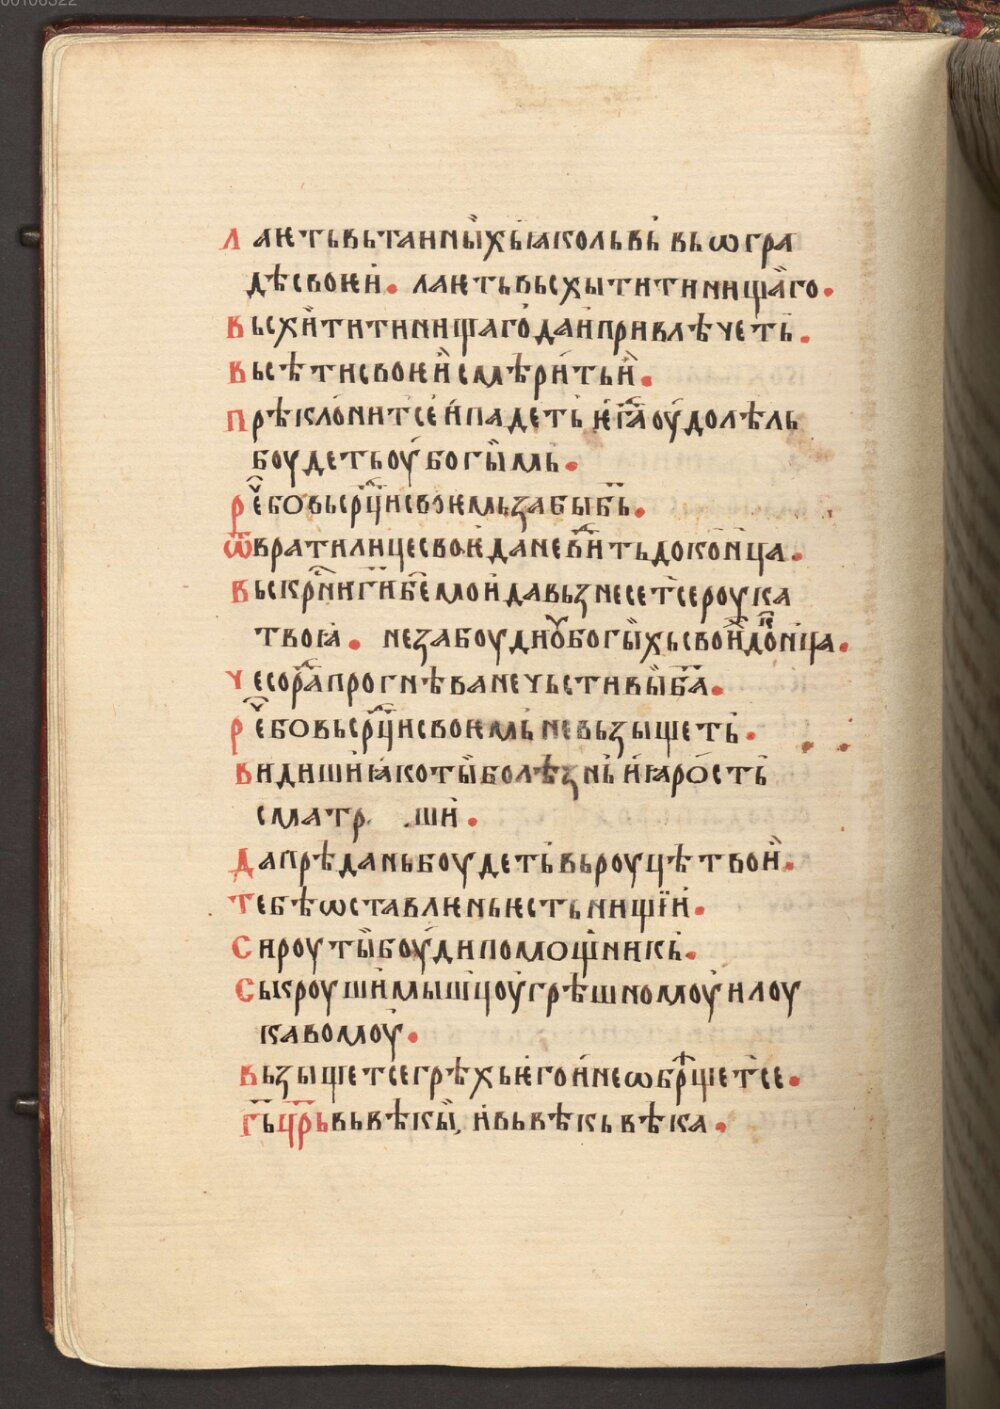 Лаѥтьвьтаиныхьꙗкольвь вьѡгра
дѣсвоѥи. лаѥтьвьсхытитинищаго.
Вьсхититинищагодапривлѣчеть.
Вьсѣтисвоѥисмѣритьи.
Прѣклонитсеипадеть ѥгⷣаоудолѣль
боудетьоубогымь.
Рⷱ҇ебовьсрⷣциисвоѥмьзабыбь҃.
Ѿвратилицесвоѥданевⷣитьдоконца.
Вьскрⷭ҇нигибⷤемоидавьзнесетсероука
твоꙗ. незабоудиꙋбогыхьсвоихдоконца.
Чесорⷣапрогнѣванечьстивыб҃а.
Рⷱ҇ебовьсрⷣциисвоѥмьневьзыщеть.
Видишиꙗкотыболѣзньиꙗрость
сматр ши.
Дапрѣданьбоудетьвьроуцѣтвои.
Тебѣѡставлѥньѥстьнищїи.
Сироутыбоудипомощникь.
Ськроушимышцоугрѣшномоуилоу
кавомоу.
Вьзыщетсегрѣхьѥгоинеѡбрⷺщетсе.
Г҃ьцр҃ьвьвѣкы, ивьвѣкьвѣка.